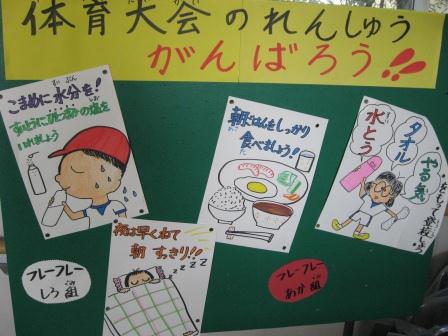 体育大会のれんしゅう
がんばろう!!
こまめに水分を!
すいとうにひとつまみの塩を
いれましょう
朝ごはんをしっかり
食べましょう!
水とう
タオル
やる気
をもって登校しよう
夜は早くねて
朝すっきり!!
zzzzz
フレーフレー
しろ組
フレーフレー
あか組